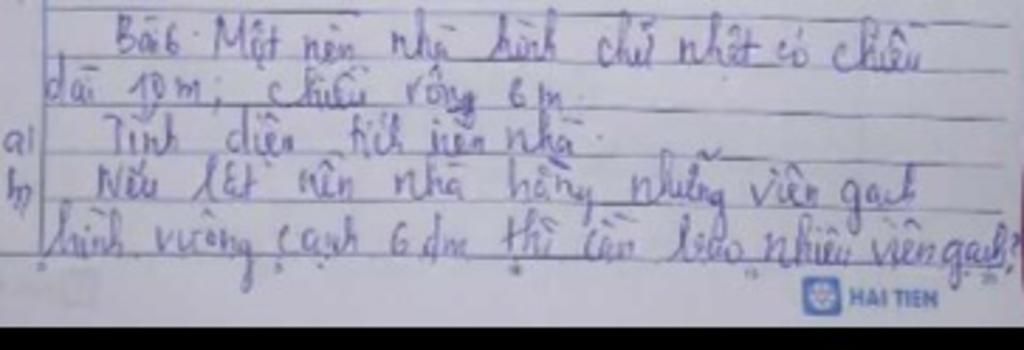 Bài 6. Một nền nhà hình chữ nhật có chiều
dài 10 m; chiều rộng 6 m.
a) Tính diện tích nền nhà.
b) Nếu lát nền nhà bằng những viên gạch
hình vuông cạnh 6 dm thì cần bao nhiêu viên gạch?
HAI TIEN